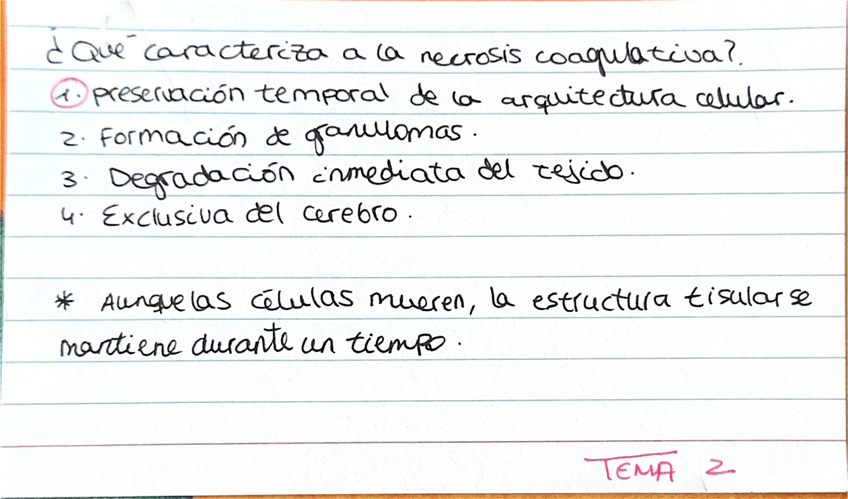 ¿Qué caracteriza a la necrosis coagulativa?.
1. preservación temporal de la arquitectura celular.
2. Formación de granulomas.
3. Degradación inmediata del tejido.
4. Exclusiva del cerebro.
* Aunque las células mueren, la estructura tisular se
mantiene durante un tiempo.
TEMA 2